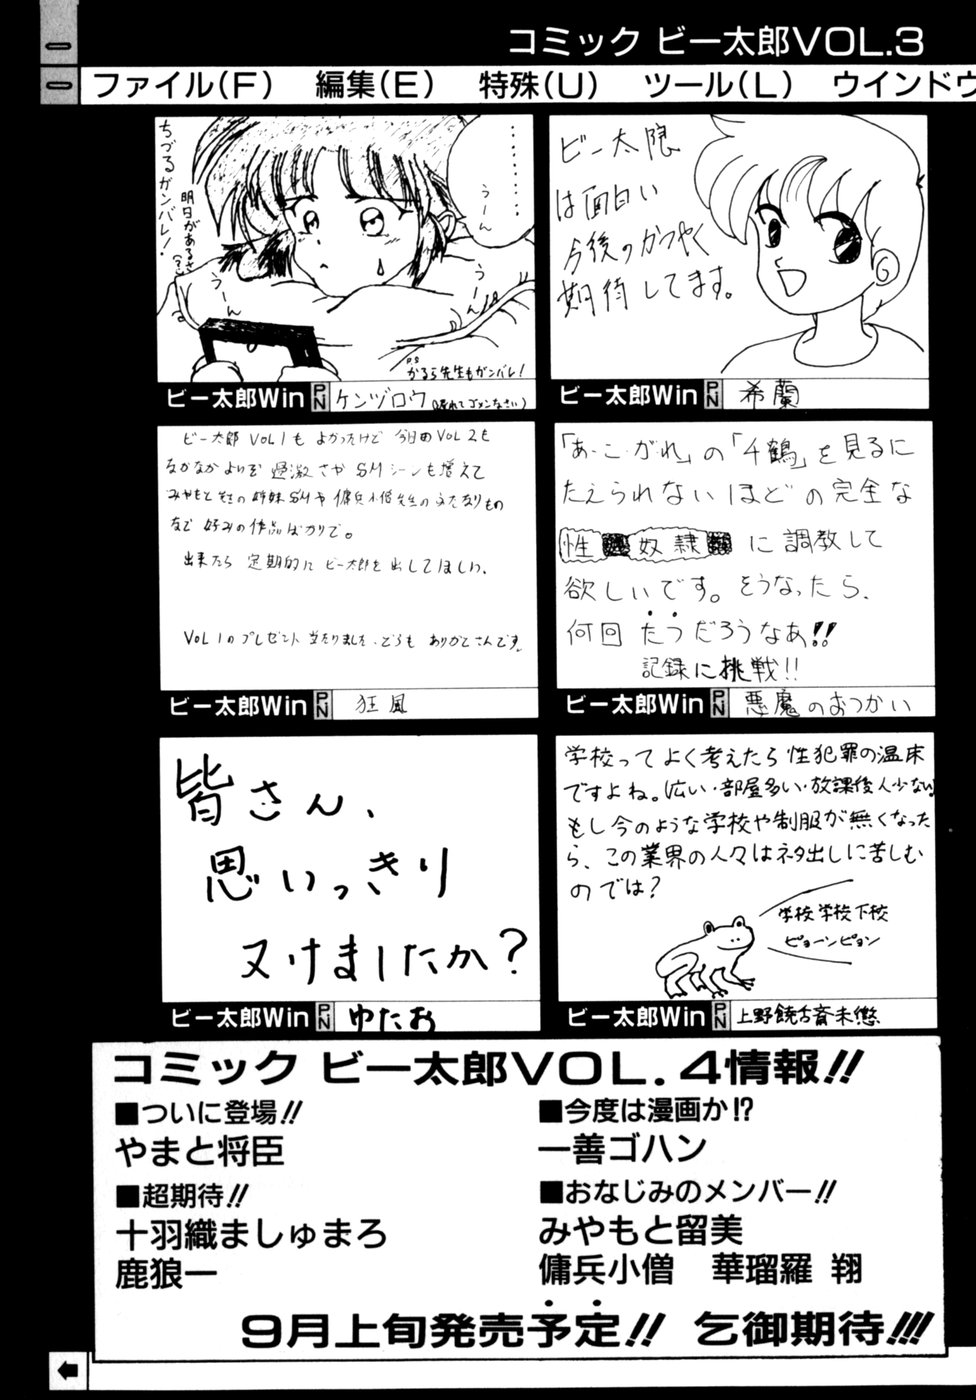 コミック ビー太郎VOL.3
ファイル(F) 編集(E) 特殊(U) ツール(L) ウインドウ
ちづるガンバレ!
明日があるさ
うーん
うーん
うーん
P.S
かるら先生もガンバレ!
ビー太郎Win PN ケンヅロウ
ビー太限
は面白い
今後のかつやく
期待してます。
ビー太郎Win PN 希蘭
ビー太郎 VOL1も よかったけど 今回のVOL2も
なかなかよいぞ 過激さや SMシーンも増えて
みやもと先生の姉妹SMや傭兵小僧先生のふたなりもの
など 好みの作品ばかりで。
出来たら 定期的に ビー太郎を出してほしい。
VOL1のプレゼント当たりました。どうも ありがとさんです。
ビー太郎Win PN 狂風
「あ・こ・が・れ」の「千鶴」を見るに
たえられないほどの完全な
性奴隷に調教して
欲しいです。そうなったら、
何回たつだろうなあ!!
記録に挑戦!!
ビー太郎Win PN 悪魔のおつかい
皆さん、
思いっきり
ヌけましたか?
ビー太郎Win PN ゆたお
学校ってよく考えたら性犯罪の温床
ですよね。広い・部屋多い・放課後人少ない
もし今のような学校や制服が無くなった
ら、この業界の人々はネタ出しに苦しむ
のでは?
学校学校下校
ピョーンピョン
ビー太郎Win PN
コミック ビー太郎VOL.4情報!!
■ついに登場!!
やまと将臣
■超期待!!
十羽織ましゅまろ
鹿狼一
■今度は漫画か!?
一善ゴハン
■おなじみのメンバー!!
みやもと留美
傭兵小僧 華瑠羅 翔
9月上旬発売予定!! 乞御期待!!!